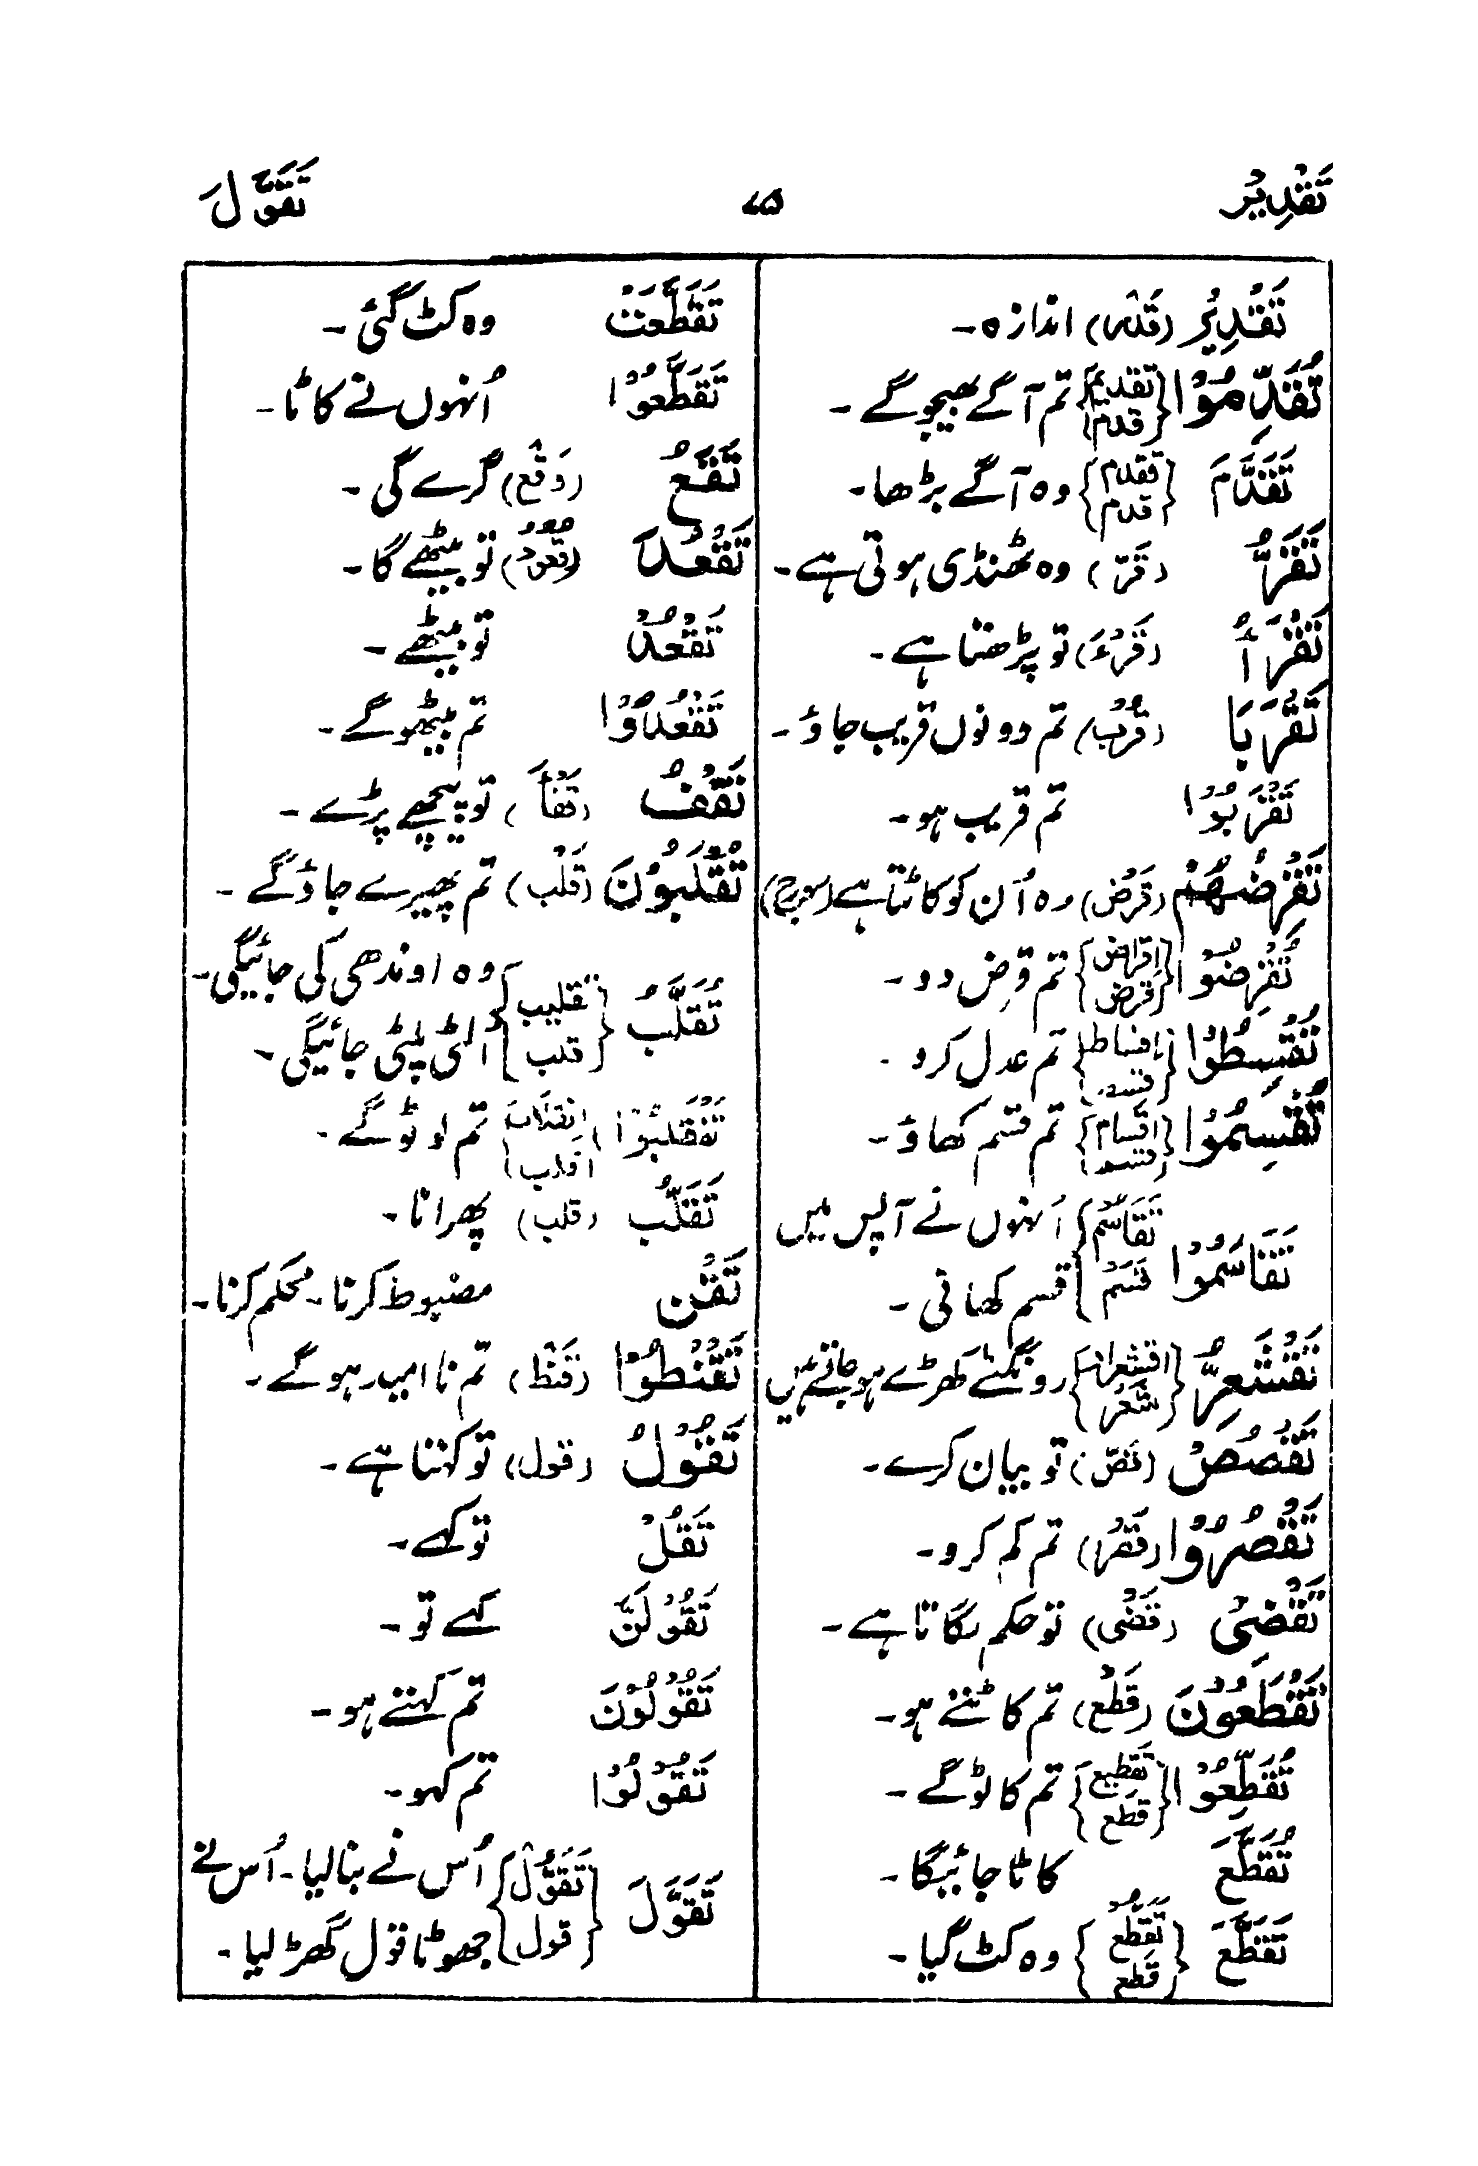 تَقْدِيْر ۷۵ تَقَوَّلَ
تَقْدِيْرُ (قَدْر) اندازہ۔
تُقَدِّمُوْا {تقديم قدم} تم آگے بھیجوگے۔
تَقَدَّمَ {تقدم قدم} وہ آگے بڑھا۔
تَقَرَّ (قَرّ) وہ ٹھنڈی ہوتی ہے۔
تَقْرَأُ (قَرْءَ) تو پڑھتا ہے۔
تَقْرَبَا (قرْب) تم دونوں قریب جاؤ۔
تَقْرَبُوْا تم قریب ہو۔
تَقْرِضُهُمْ (قَرْض) وہ اُن کو کاٹتا ہے (سورج)
تُقْرِضُوْا {اقراض قرض} تم قرض دو۔
تُقْسِطُوْا {اقساط قسط} تم عدل کرو۔
تُقْسِمُوْا {اقسام قسم} تم قسم کھاؤ۔
تَقَاسَمُوْا {تَقَاسُم قَسَم} اُنہوں نے آپس میں
قسم کھائی۔
تَقْشَعِرُّ {اقشعرار شعر} رونگٹے کھڑے ہو جاتے ہیں
تَقْصُصْ (قَصّ) تو بیان کرے۔
تَقْصُرُوْا (قَصْر) تم کم کرو۔
تَقْضِيْ (قَضْی) تو حکم لگاتا ہے۔
تَقْطَعُوْنَ (قَطْع) تم کاٹتے ہو۔
تُقَطِّعُوْا {تَقْطِيع قطع} تم کاٹوگے۔
تُقَطَّعَ کاٹا جائیگا۔
تَقَطَّعَ {تَقَطُّع قطع} وہ کٹ گیا۔
تَقَطَّعَتْ وہ کٹ گئی۔
تَقَطَّعُوْا اُنہوں نے کاٹا۔
تَقَعُ (وَقْع) گرے گی۔
تَقْعُدَ (قُعُوْد) تو بیٹھے گا۔
تَقْعُدْ تو بیٹھے۔
تَقْعُدُوْا تم بیٹھوگے۔
تَقْفُ (قَفْأ) تو پیچھے پڑے۔
تُقْلَبُوْنَ (قَلْب) تم پھیرے جاؤگے۔
تُقَلَّبُ {تقليب قلب} وہ اوندھی کی جائیگی۔
الٹی پلٹی جائیگی۔
تَنْقَلِبُوْا (انقلاب قلب) تم لوٹوگے۔
تَقَلُّبَ (قلب) پھرانا۔
تَقْن مضبوط کرنا۔ محکم کرنا۔
تَقْنَطُوْا (قَنْط) تم نا امید ہوگے۔
تَقُوْلُ (قول) تو کہتا ہے۔
تَقُلْ تو کہے۔
تَقُوْلَنَّ کہے تو۔
تَقُوْلُوْنَ تم کہتے ہو۔
تَقُوْلُوْا تم کہو۔
تَقَوَّلَ {تَقَوُّل قول} اُس نے بنالیا۔ اُس نے
جھوٹا قول گھڑ لیا۔